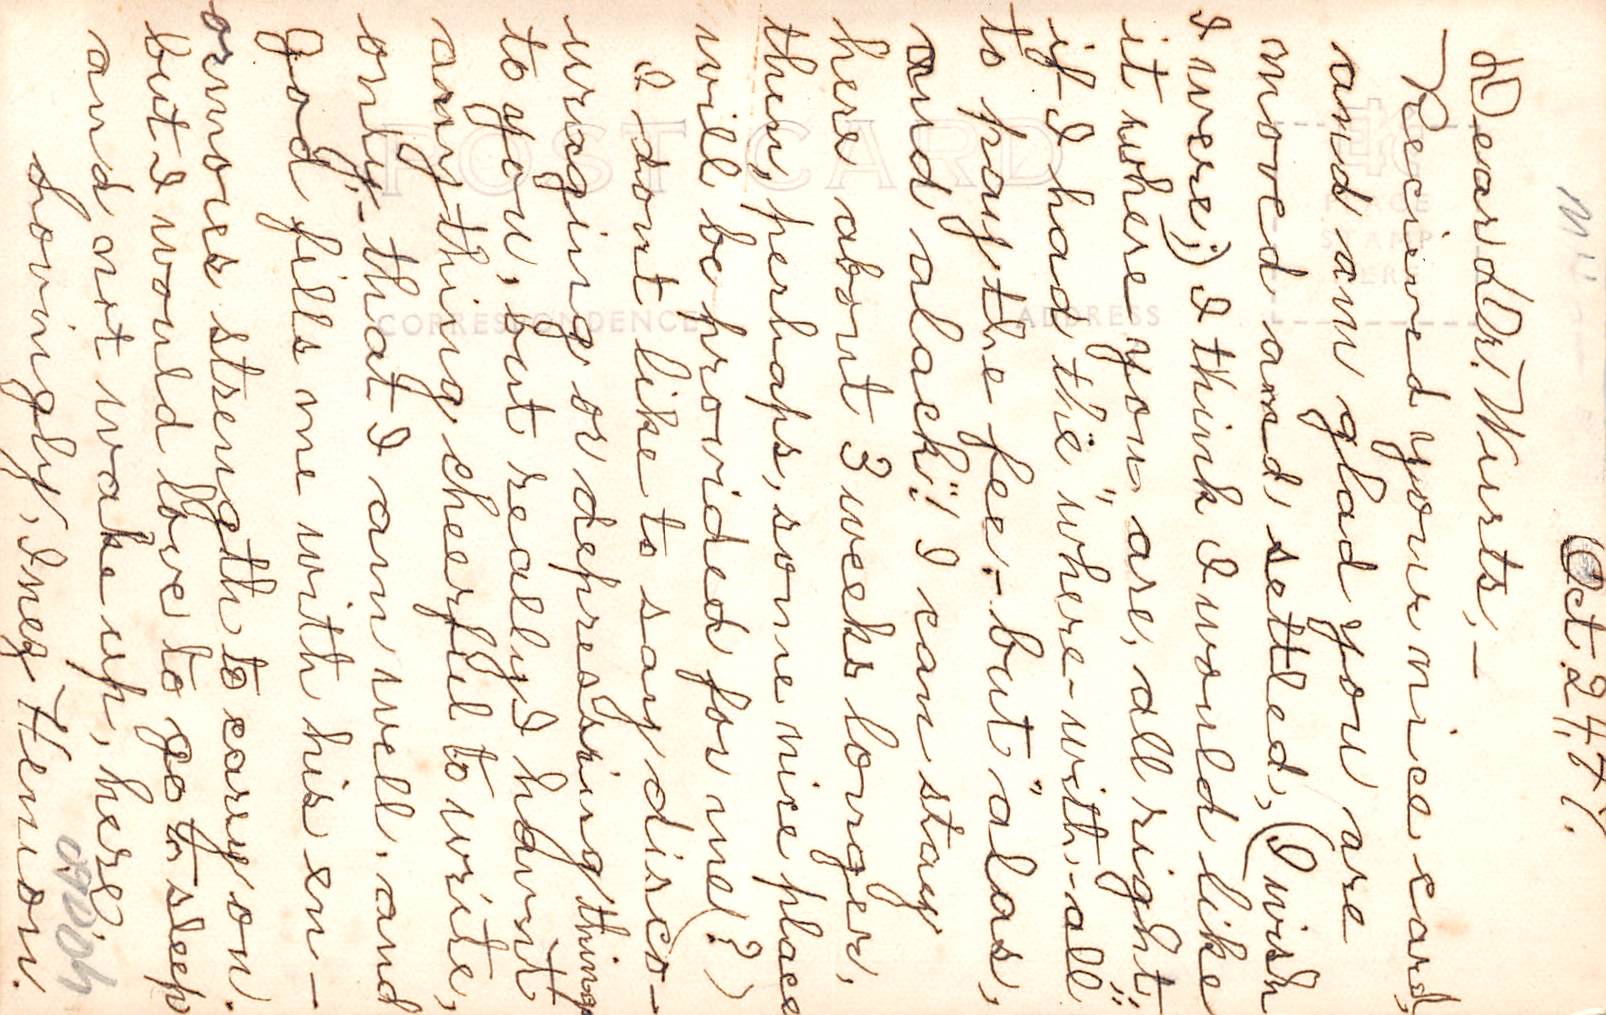 Oct. 24, 47.
Dear Dr. Wurts, —
Received your nice card,
and am glad you are
moved and settled, (I wish
I were;) I think I would like
it where you are, all right;
if I had the "where-with-all"
to pay the fee - but "alas,
and alack!" I can stay
here about 3 weeks longer,
then, perhaps, some nice place
will be provided for me (?)
I dont like to say disco-
uraging or depressing things
to you, but really I havnt
any thing cheerful to write,
only - that I am well, and
God fills me with his en-
ormoies strength to carry on.
but I would love to go to sleep
and not wake up, here.
Lovingly, Inez Henion.
POST CARD
CORRESPONDENCE
ADDRESS
PLACE
STAMP
HERE